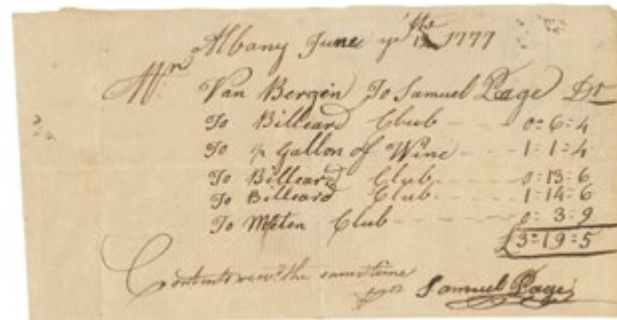 Albany June ye 12 the 1777
Mr Van Bergen To Samuel Page Dr
To Billeard Club 0=6=4
To ½ Gallon of Wine 1=1=4
To Billeard Club 0=13=6
To Billeard Club 1=14=6
To Meten Club 0=3=9
3=19=5
Contents recd the same time
Samuel Page